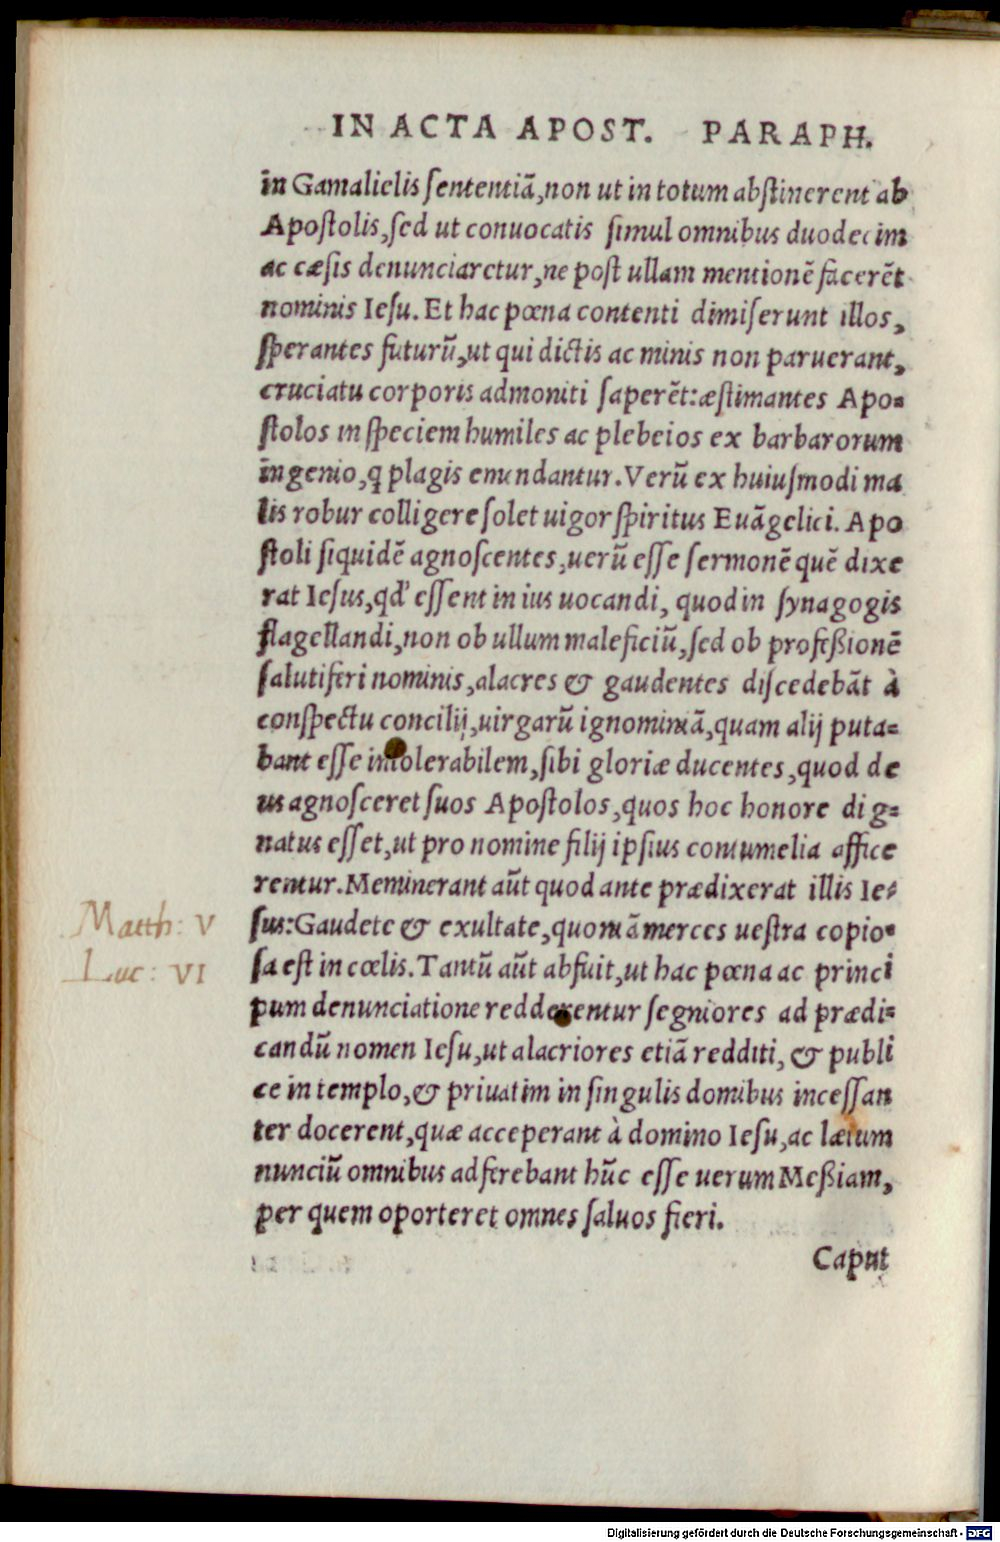 IN ACTA APOST. PARAPH.
in Gamalielis ſententiā, non ut in totum abſtinerent ab
Apoſtolis, ſed ut conuocatis ſimul omnibus duodecim
ac cæſis denunciaretur, ne poſt ullam mentionē facerēt
nominis Ieſu. Et hac pœna contenti dimiſerunt illos,
ſperantes futurū, ut qui dictis ac minis non paruerant,
cruciatu corporis admoniti ſaperēt: æſtimantes Apo=
ſtolos in ſpeciem humiles ac plebeios ex barbarorum
ingenio, q plagis emundantur. Verū ex huiuſmodi ma
lis robur colligere ſolet uigor ſpiritus Euāgelici. Apo
ſtoli ſiquidē agnoſcentes, uerū eſſe ſermonē quē dixe
rat Ieſus, qd' eſſent in ius uocandi, quod in ſynagogis
flagellandi, non ob ullum maleficiū, ſed ob profeßionē
ſalutiferi nominis, alacres & gaudentes diſcedebāt à
conſpectu concilij, uirgarū ignominiā, quam alij puta=
bant eſſe intolerabilem, ſibi gloriæ ducentes, quod de
us agnoſceret ſuos Apoſtolos, quos hoc honore dig=
natus eſſet, ut pro nomine filij ipſius contumelia affice
rentur. Meminerant aūt quod ante prædixerat illis Ie=
ſus: Gaudete & exultate, quoniā merces ueſtra copio=
ſa eſt in cœlis. Tantū aūt abfuit, ut hac pœna ac princi
pum denunciatione redderentur ſegniores ad prædi=
candū nomen Ieſu, ut alacriores etiā redditi, & publi
ce in templo, & priuatim in ſingulis domibus inceſſan
ter docerent, quæ acceperant à domino Ieſu, ac lætum
nunciū omnibus adferebant hūc eſſe uerum Meßiam,
per quem oporteret omnes ſaluos fieri.
Caput
Matth: V
Luc: VI
Digitalisierung gefördert durch die Deutsche Forschungsgemeinschaft - DFG